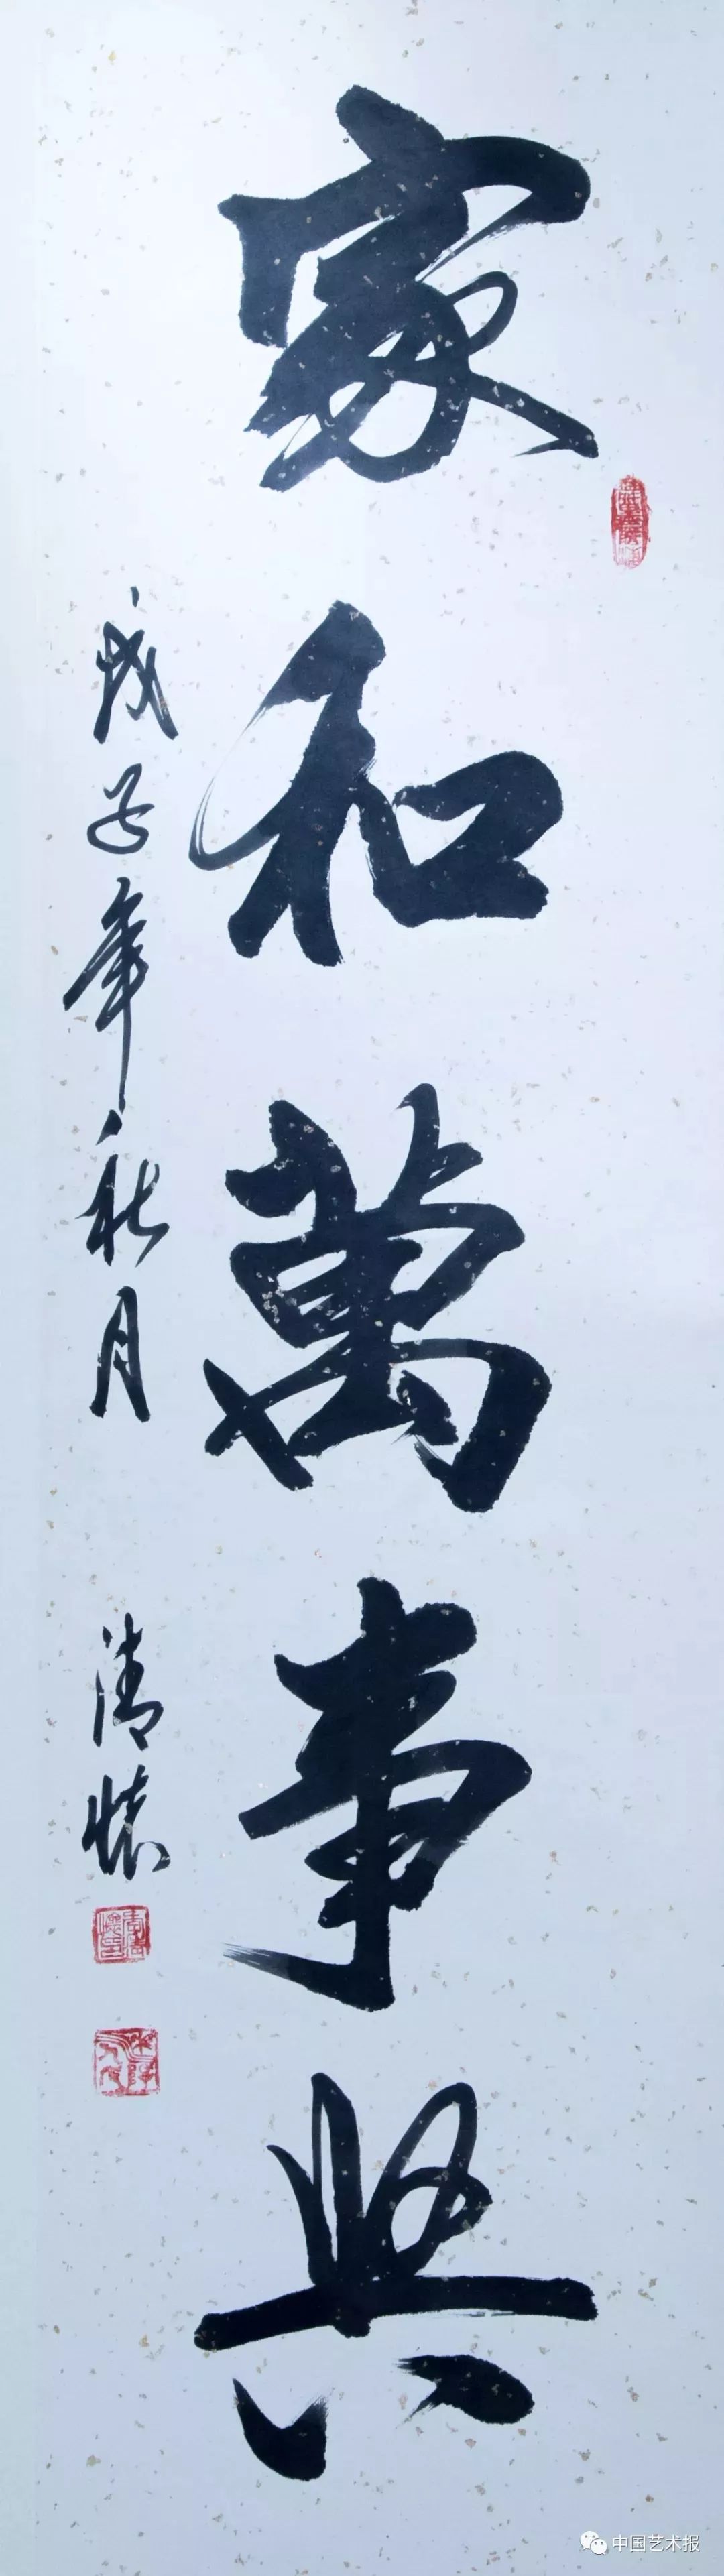 家和萬事興
戊子年秋月 清懷
中国艺术报